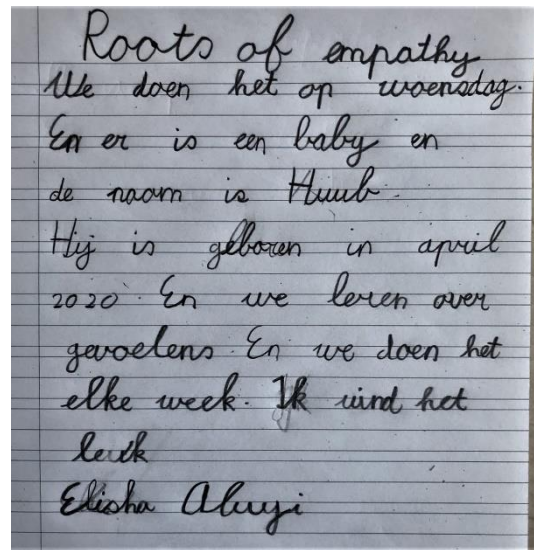 Roots of empathy
We doen het op woensdag.
En er is een baby en
de naam is Huub.
Hij is geboren in april
2020. En we leren over
gevoelens. En we doen het
elke week. Ik vind het
leuk
Elisha